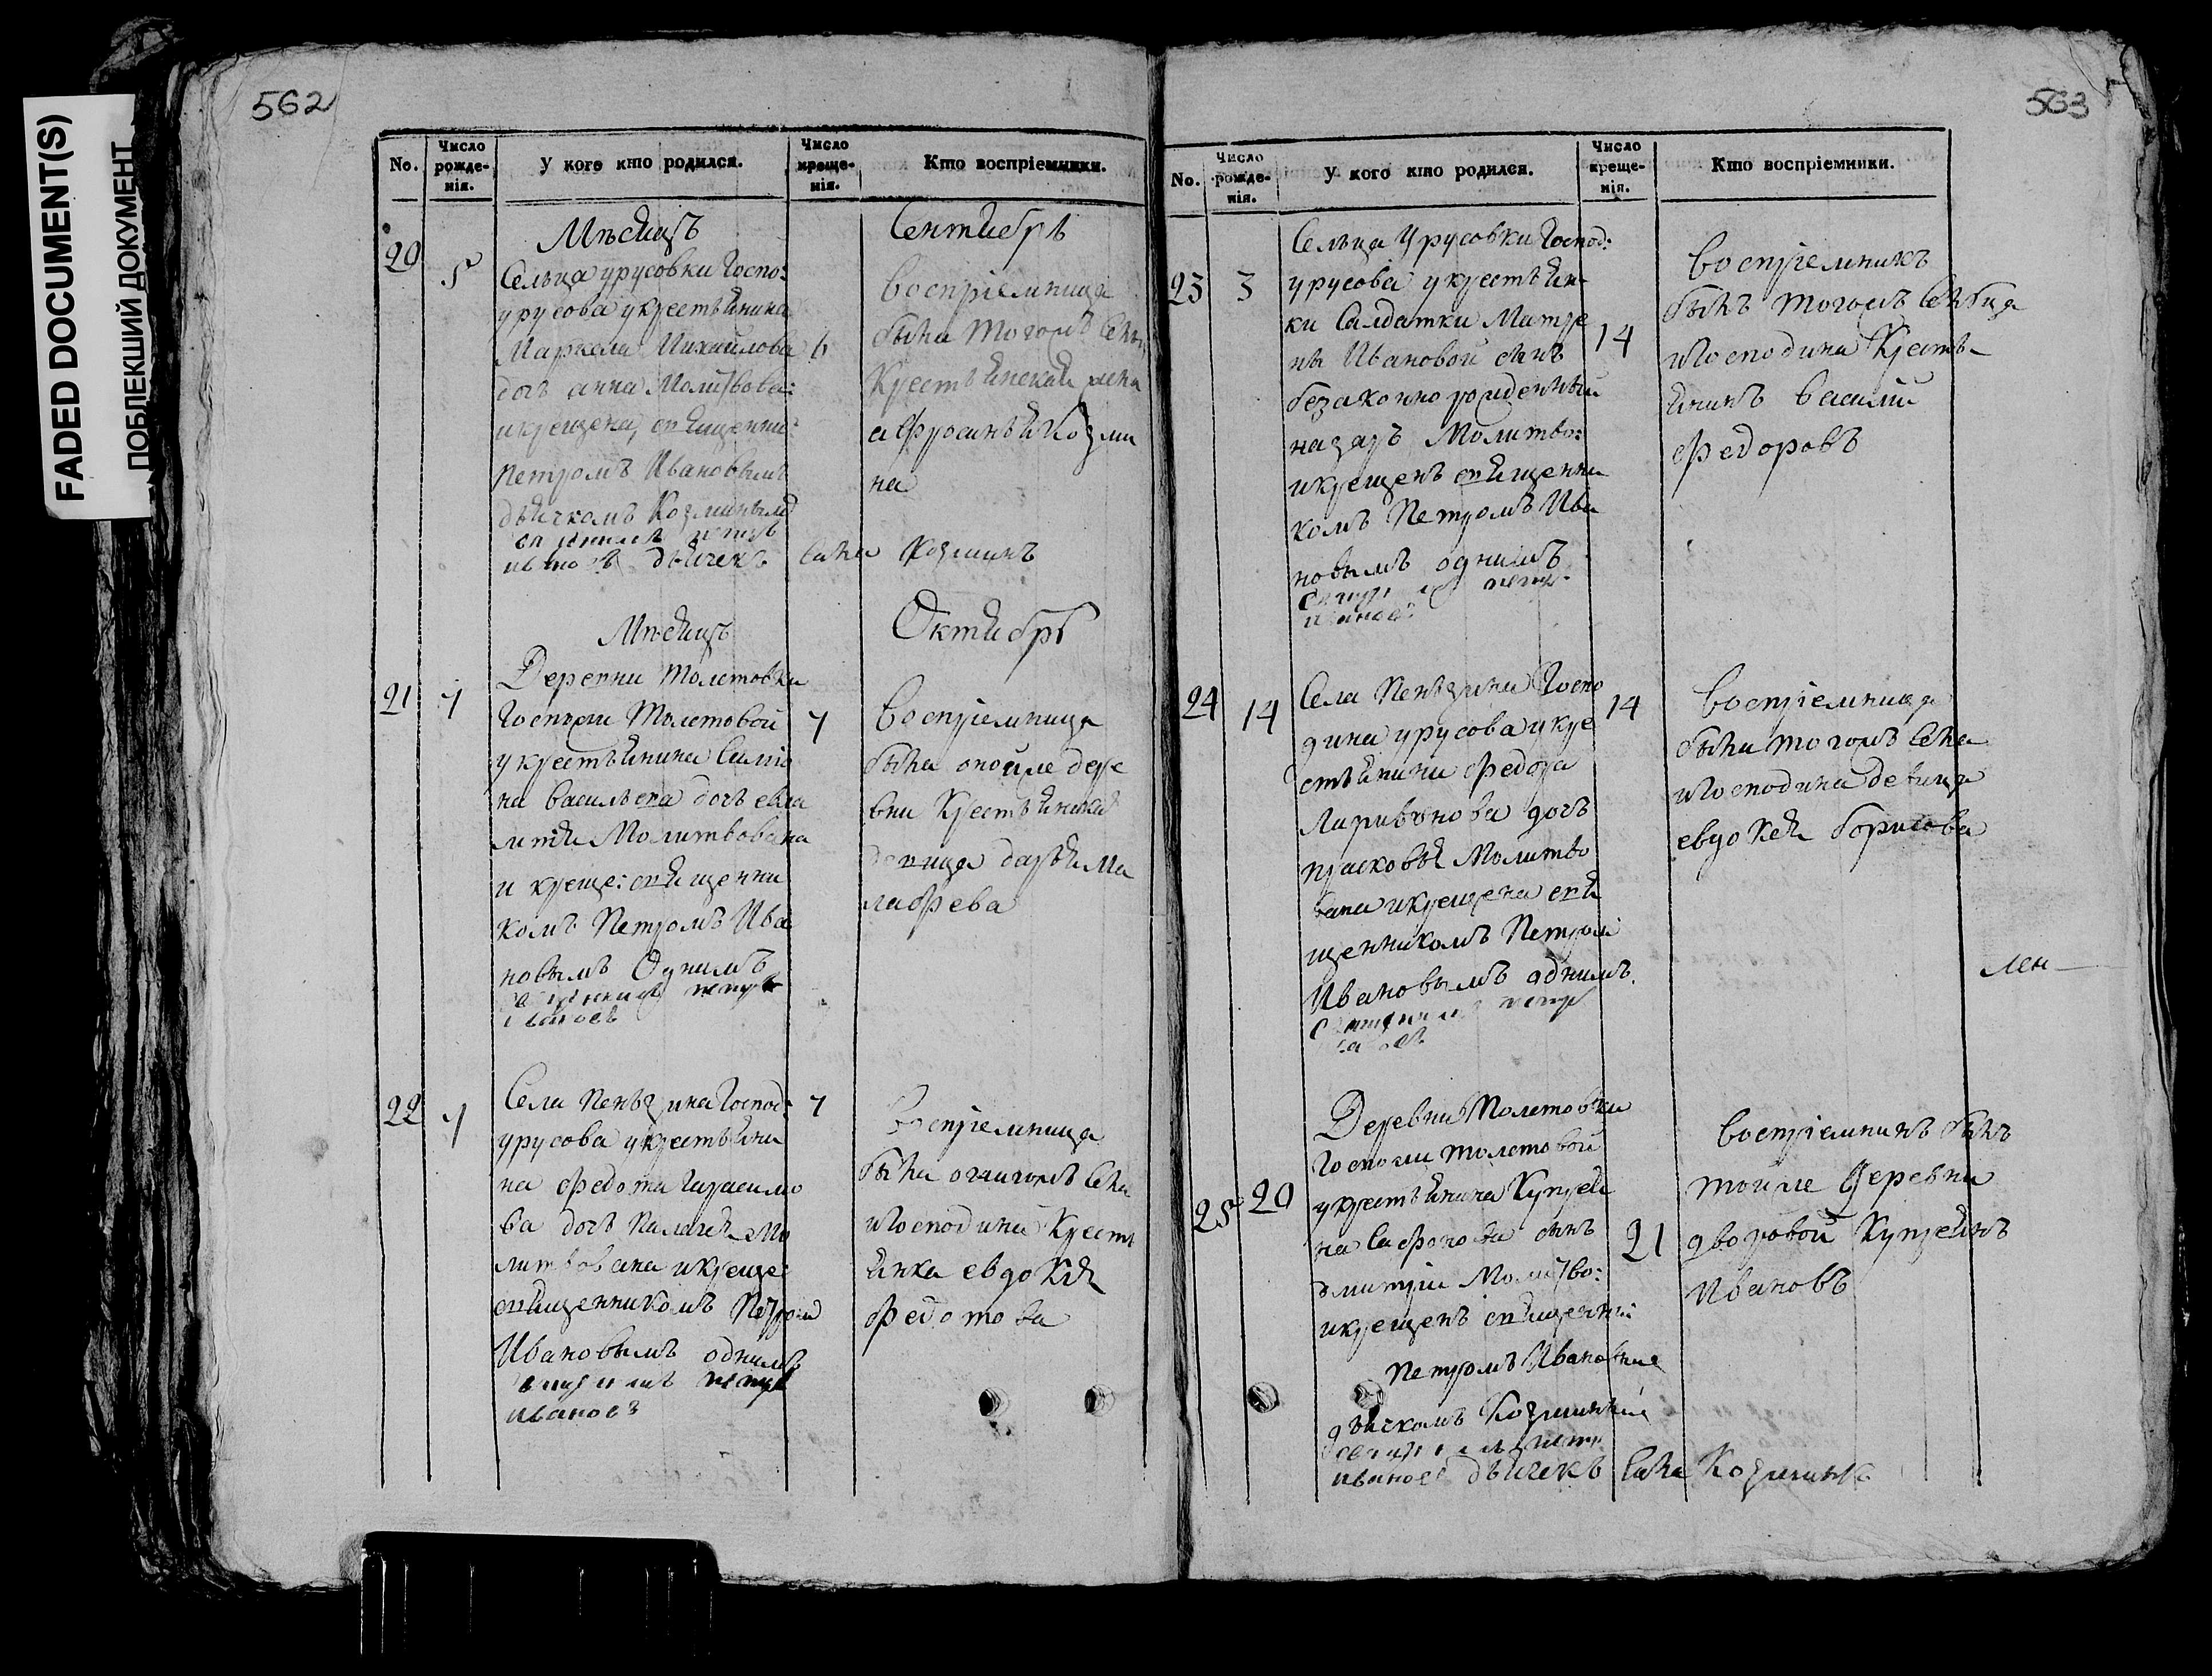 FADED DOCUMENT(S)
ПОБЛЕКШИЙ ДОКУМЕНТ
562
No.
Число рожде-нія.
У кого кто родился.
Число креще-нія.
Кто воспріемники.
Мѣсяцъ Сентябрь
20
5
6
Сельца урусовки Госпо:
урусова укрестьянина
Маркела Михайлова
дочь анна Молитвова:
икрещена, священни:
петромъ Ивановымъ
дьячкомъ Козминымъ
иванов дьячекъ сава Козминъ
воспріемница
была тогожъ
Крестьянская жена
афросинья Козми
на
Мѣсяцъ Октябрь
21
4
4
Деревни Толстовки
Госпжи Толстовой
укрестьянина Симио
на васильева дочь евла
мпія Молитвована
и креще: священни
комъ Петромъ Ива
новымъ Однимъ
петръ
ивановъ
воспріемница
была оной же дере
вни Крестьянская
девица дарья Ма
лафеева
22
4
4
Села Госпо:
урусова укрестьяни
на федота Гарасимо
ва дочь Палагея Мо
литвована икреще:
священникомъ Петромъ
Ивановымъ однимъ
петръ
ивановъ
воспріемница
была Села
иГосподина Кресть
янка евдокия
федотова
563
No.
Число рожде-нія.
У кого кто родился.
Число креще-нія.
Кто воспріемники.
23
3
14
Сельца Урусовки Господ:
урусова укрестьян-
ки Салдатки Матре
ны Ивановой сынъ
безаконно рожденный
назаръ Молитво:
икрещенъ священни
комъ Петромъ Ива
новымъ однимъ
петръ
ивановъ
воспріемникъ
былъ тогожъ Сельца
иГосподина Кресть-
янинъ василий
федоровъ
24
14
14
Села Госпо
дина урусова укре
стьянина федора
Ларивонова дочь
прасковья Молитво
вана икрещена свя
щенникомъ Петромъ
Ивановымъ однимъ
петръ
воспріемница
была тогожъ Села
иГосподина девица
евдокея борисова
лен
25
20
21
Деревни Толстовки
Госпожи толстовой
укрестьянина Купрея
на Сафонова сынъ
дмитрии Молитво:
икрещенъ священни:
Петромъ Ивановымъ
дьячкомъ Козминымъ
ивановъ дьячекъ Сава Козминъ
воспріемникъ былъ
тойже Деревни
дворовой Купреянъ
Ивановъ